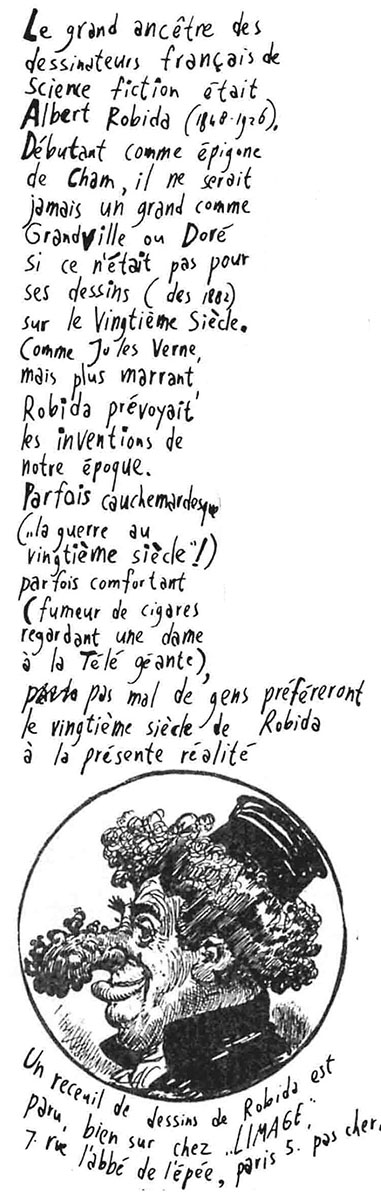 Le grand ancêtre des
dessinateurs français de
science fiction était
Albert Robida (1848-1926).
Débutant comme épigone
de Cham, il ne serait
jamais un grand comme
Grandville ou Doré
si ce n'était pas pour
ses dessins (des 1882)
sur le Vingtième Siècle.
Comme Jules Verne,
mais plus marrant,
Robida prévoyait
les inventions de
notre époque.
Parfois cauchemardesque
(„la guerre au
vingtième siècle"!)
parfois comfortant
(fumeur de cigares
regardant une dame
à la Télé géante),
pas mal de gens préféreront
le vingtième siècle de Robida
à la présente réalité
Un receuil de dessins de Robida est
paru, bien sur chez „LIMAGE„
7. rue l'abbé de l'épée, paris 5. pas cher.